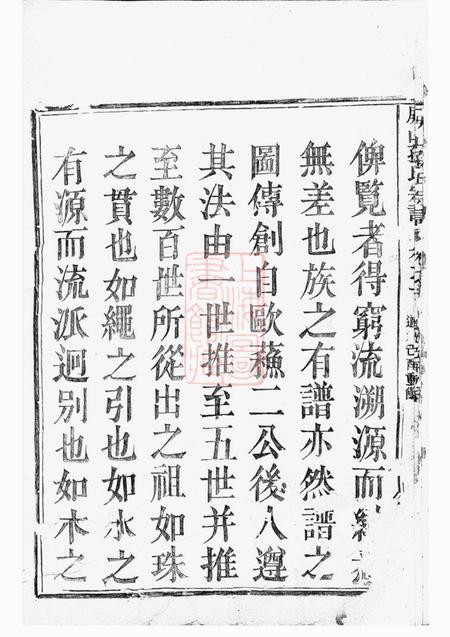 俾覽者得窮流溯源而
無差也族之有譜亦然譜之
圖傳創自歐蘓二公後人遵
其法由一世推至五世并推
至數百世所從出之祖如珠
之貫也如繩之引也如水之
有源而流派迥別也如木之